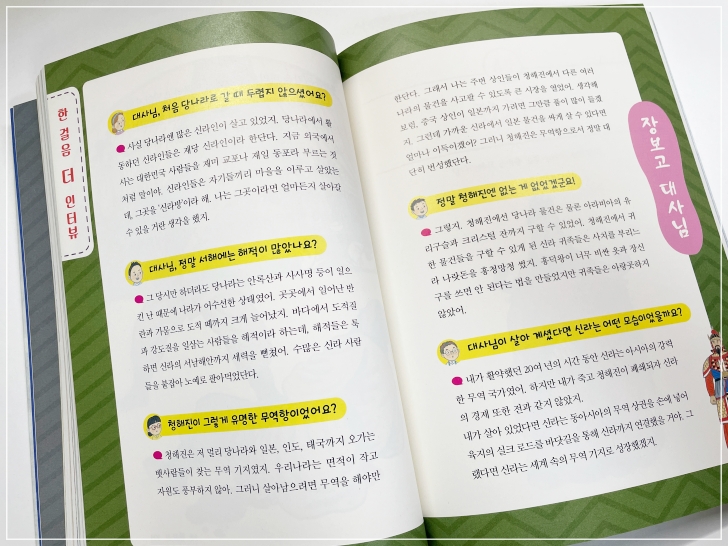 한 걸음 더 인터뷰
대사님, 처음 당나라로 갈 때 두렵지 않으셨어요?
사실 당나라엔 많은 신라인이 살고 있었지. 당나라에서 활
동하던 신라인들은 재당 신라인이라 한단다. 지금 외국에서
사는 대한민국 사람들을 재미 교포나 재일 동포라 부르는 것
처럼 말이야. 신라인들은 자기들끼리 마을을 이루고 살았는
데, 그곳을 '신라방'이라 해. 나는 그곳이라면 얼마든지 살아갈
수 있을 거란 생각을 했지.
대사님, 정말 서해에는 해적이 많았나요?
그 당시만 하더라도 당나라는 안녹산과 사사명 등이 일으
킨 난 때문에 나라가 어수선한 상태였어. 곳곳에서 일어난 반
란과 기뭄으로 도적 떼까지 크게 늘어났지. 바다에서 도적질
과 강도질을 일삼는 사람들을 해적이라 하는데, 해적들은 툭
하면 신라의 서남해안까지 세력을 뻗쳤어. 수많은 신라 사람
들을 붙잡아 노예로 팔아먹었단다.
청해진이 그렇게 유명한 무역항이었어요?
청해진은 저 멀리 당나라와 일본, 인도, 태국까지 오가는
뱃사람들이 찾는 무역 기지였지. 우리나라는 면적이 작고
자원도 풍부하지 않아. 그러니 살아남으려면 무역을 해야만
한단다. 그래서 나는 주변 상인들이 청해진에서 다른 여러
나라의 물건을 사고팔 수 있도록 큰 시장을 열었어. 생각해
보렴. 중국 상인이 일본까지 가려면 그만큼 품이 많이 들겠
지. 그런데 가까운 신라에서 일본 물건을 싸게 살 수 있다면
얼마나 이득이겠어? 그러니 청해진은 무역항으로서 정말 대
단히 번성했단다.
정말 청해진엔 없는 게 없었겠군요!
그렇지. 청해진에선 당나라 물건은 물론 아라비아의 유
리구슬과 크리스털 잔까지 구할 수 있었어. 청해진에서 귀
한 물건들을 구할 수 있게 된 신라 귀족들은 사치를 부리느
라 나랏돈을 흥청망청 썼지. 흥덕왕이 너무 비싼 옷과 장신
구를 쓰면 안 된다는 법을 만들었지만 귀족들은 아랑곳하지
않았어.
대사님이 살아 계셨다면 신라는 어떤 모습이었을까요?
내가 활약했던 20여 년의 시간 동안 신라는 아시아의 강력
한 무역 국가였어. 하지만 내가 죽고 청해진이 폐쇄되자 신라
의 경제 또한 전과 같지 않았지.
내가 살아 있었다면 신라는 동아시아의 무역 상권을 손에 넣어
육지의 실크 로드를 바닷길을 통해 신라까지 연결했을 거야. 그
랬다면 신라는 세계 속의 무역 기지로 성장했겠지.
장보고 대사님